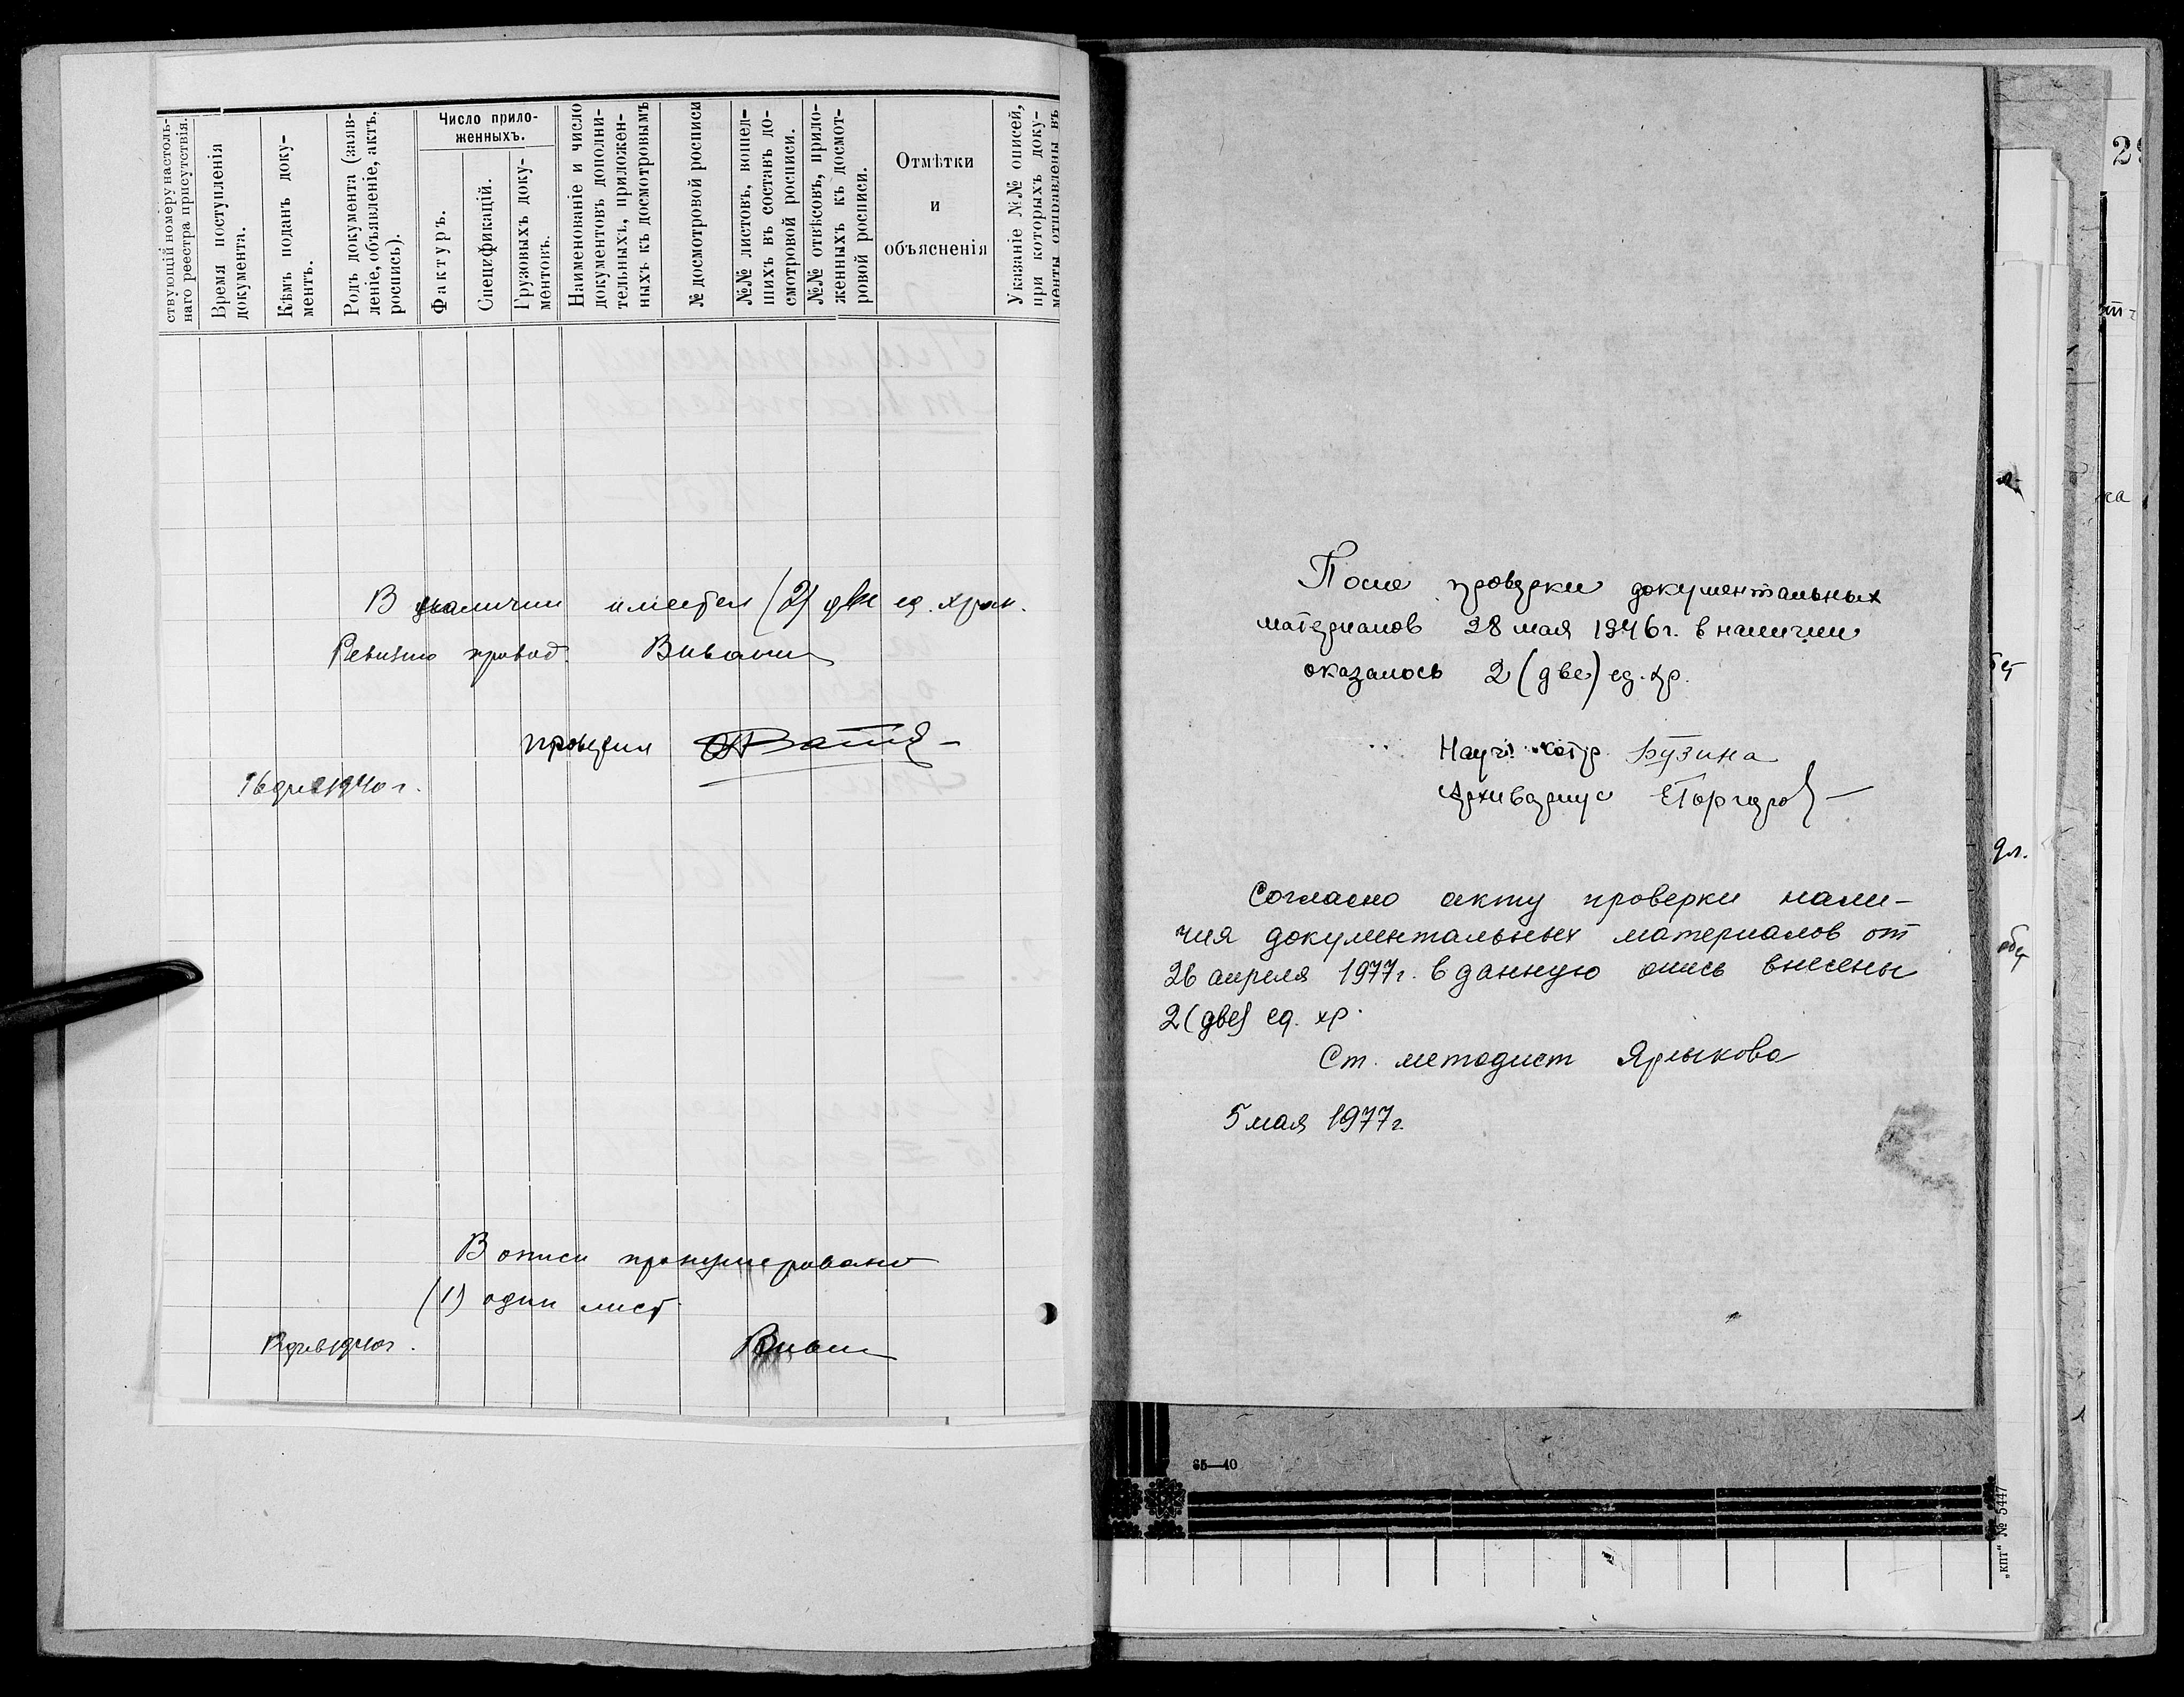 ствующій номеру настоль-
наго реестра присутствія.
Время поступленія
документа.
Кѣмъ поданъ доку-
ментъ.
Родъ документа (заяв-
леніе, объявленіе, актъ,
роспись).
Число прило-
женныхъ.
Фактуръ.
Спецификацій.
Грузовыхъ доку-
ментовъ.
Наименованіе и число
документовъ дополни-
тельныхъ, приложен-
ныхъ къ досмотровымъ
№ досмотровой росписи
№№ листовъ, вошед-
шихъ въ составъ до-
смотровой росписи.
№№ отвѣсовъ, прило-
женныхъ къ досмот-
ровой росписи.
Отмѣтки
и
объясненія
Указаніе №№ описей,
при которыхъ доку-
менты отправлены въ
В наличии имеется (2) две ед. хран.
Ревизию провод.
проверил
1940 г.
В описи пронумеровано
(1) один лист
1940г.
После проверки документальных
материалов 28 мая 1946г. в наличии
оказалось 2 (две) ед. хр.
Науч. сотр. Бузина
Архивариус
Согласно акту проверки нали-
чия документальных материалов от
26 апреля 1977г. в данную опись внесены
2 (две) ед. хр.
Ст. методист Ярлыкова
5 мая 1977г.
65—40
„КПТ“ № 5447